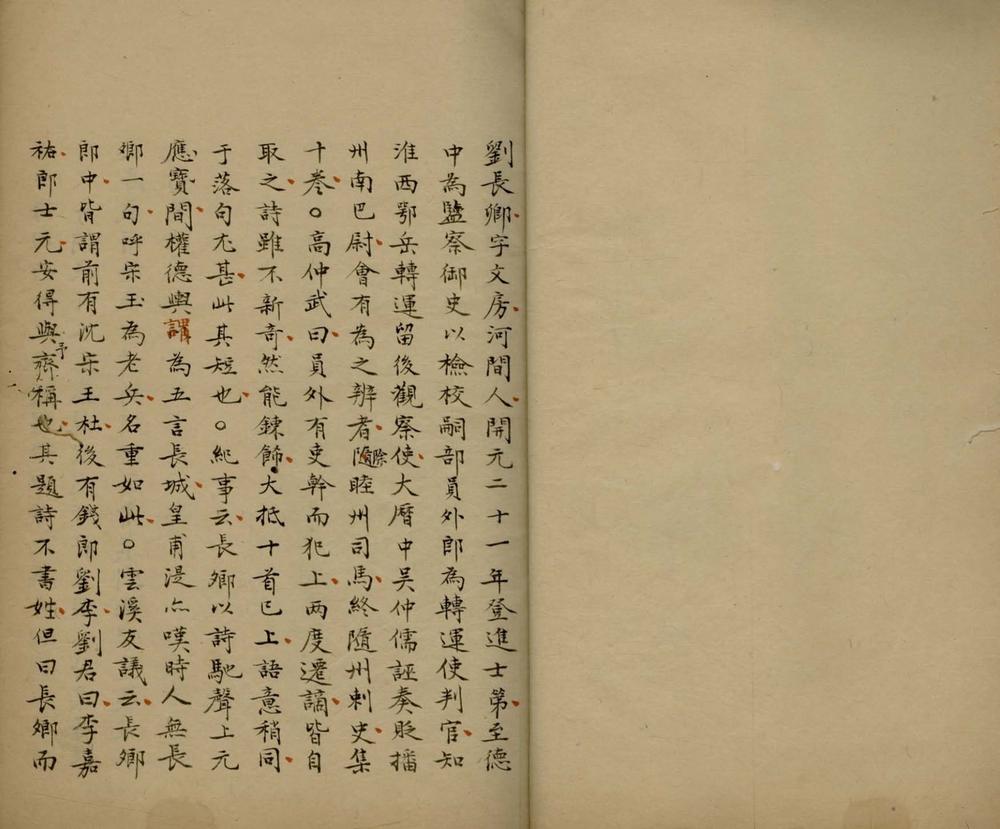 劉長卿字文房河間人開元二十一年登進士第至德
中為監察御史以檢校嗣部員外郎為轉運使判官知
淮西鄂岳轉運留後觀察使大曆中吳仲儒誣奏貶播
州南巴尉會有為之辨者隨除睦州司馬終隨州刺史集
十卷○高仲武曰員外有吏幹而犯上两度遷謫皆自
取之詩雖不新奇然能鍊飾大抵十首已上語意稍同
于落句尤甚此其短也○紀事云長卿以詩馳聲上元
應寶間權德輿謂為五言長城皇甫湜亦嘆時人無長
卿一句呼宋玉為老兵名重如此○雲溪友議云長卿
郎中皆謂前有沈宋王杜後有錢郎劉李劉君曰李嘉
祐郎士元安得與予齊稱也其題詩不書姓但曰長卿而